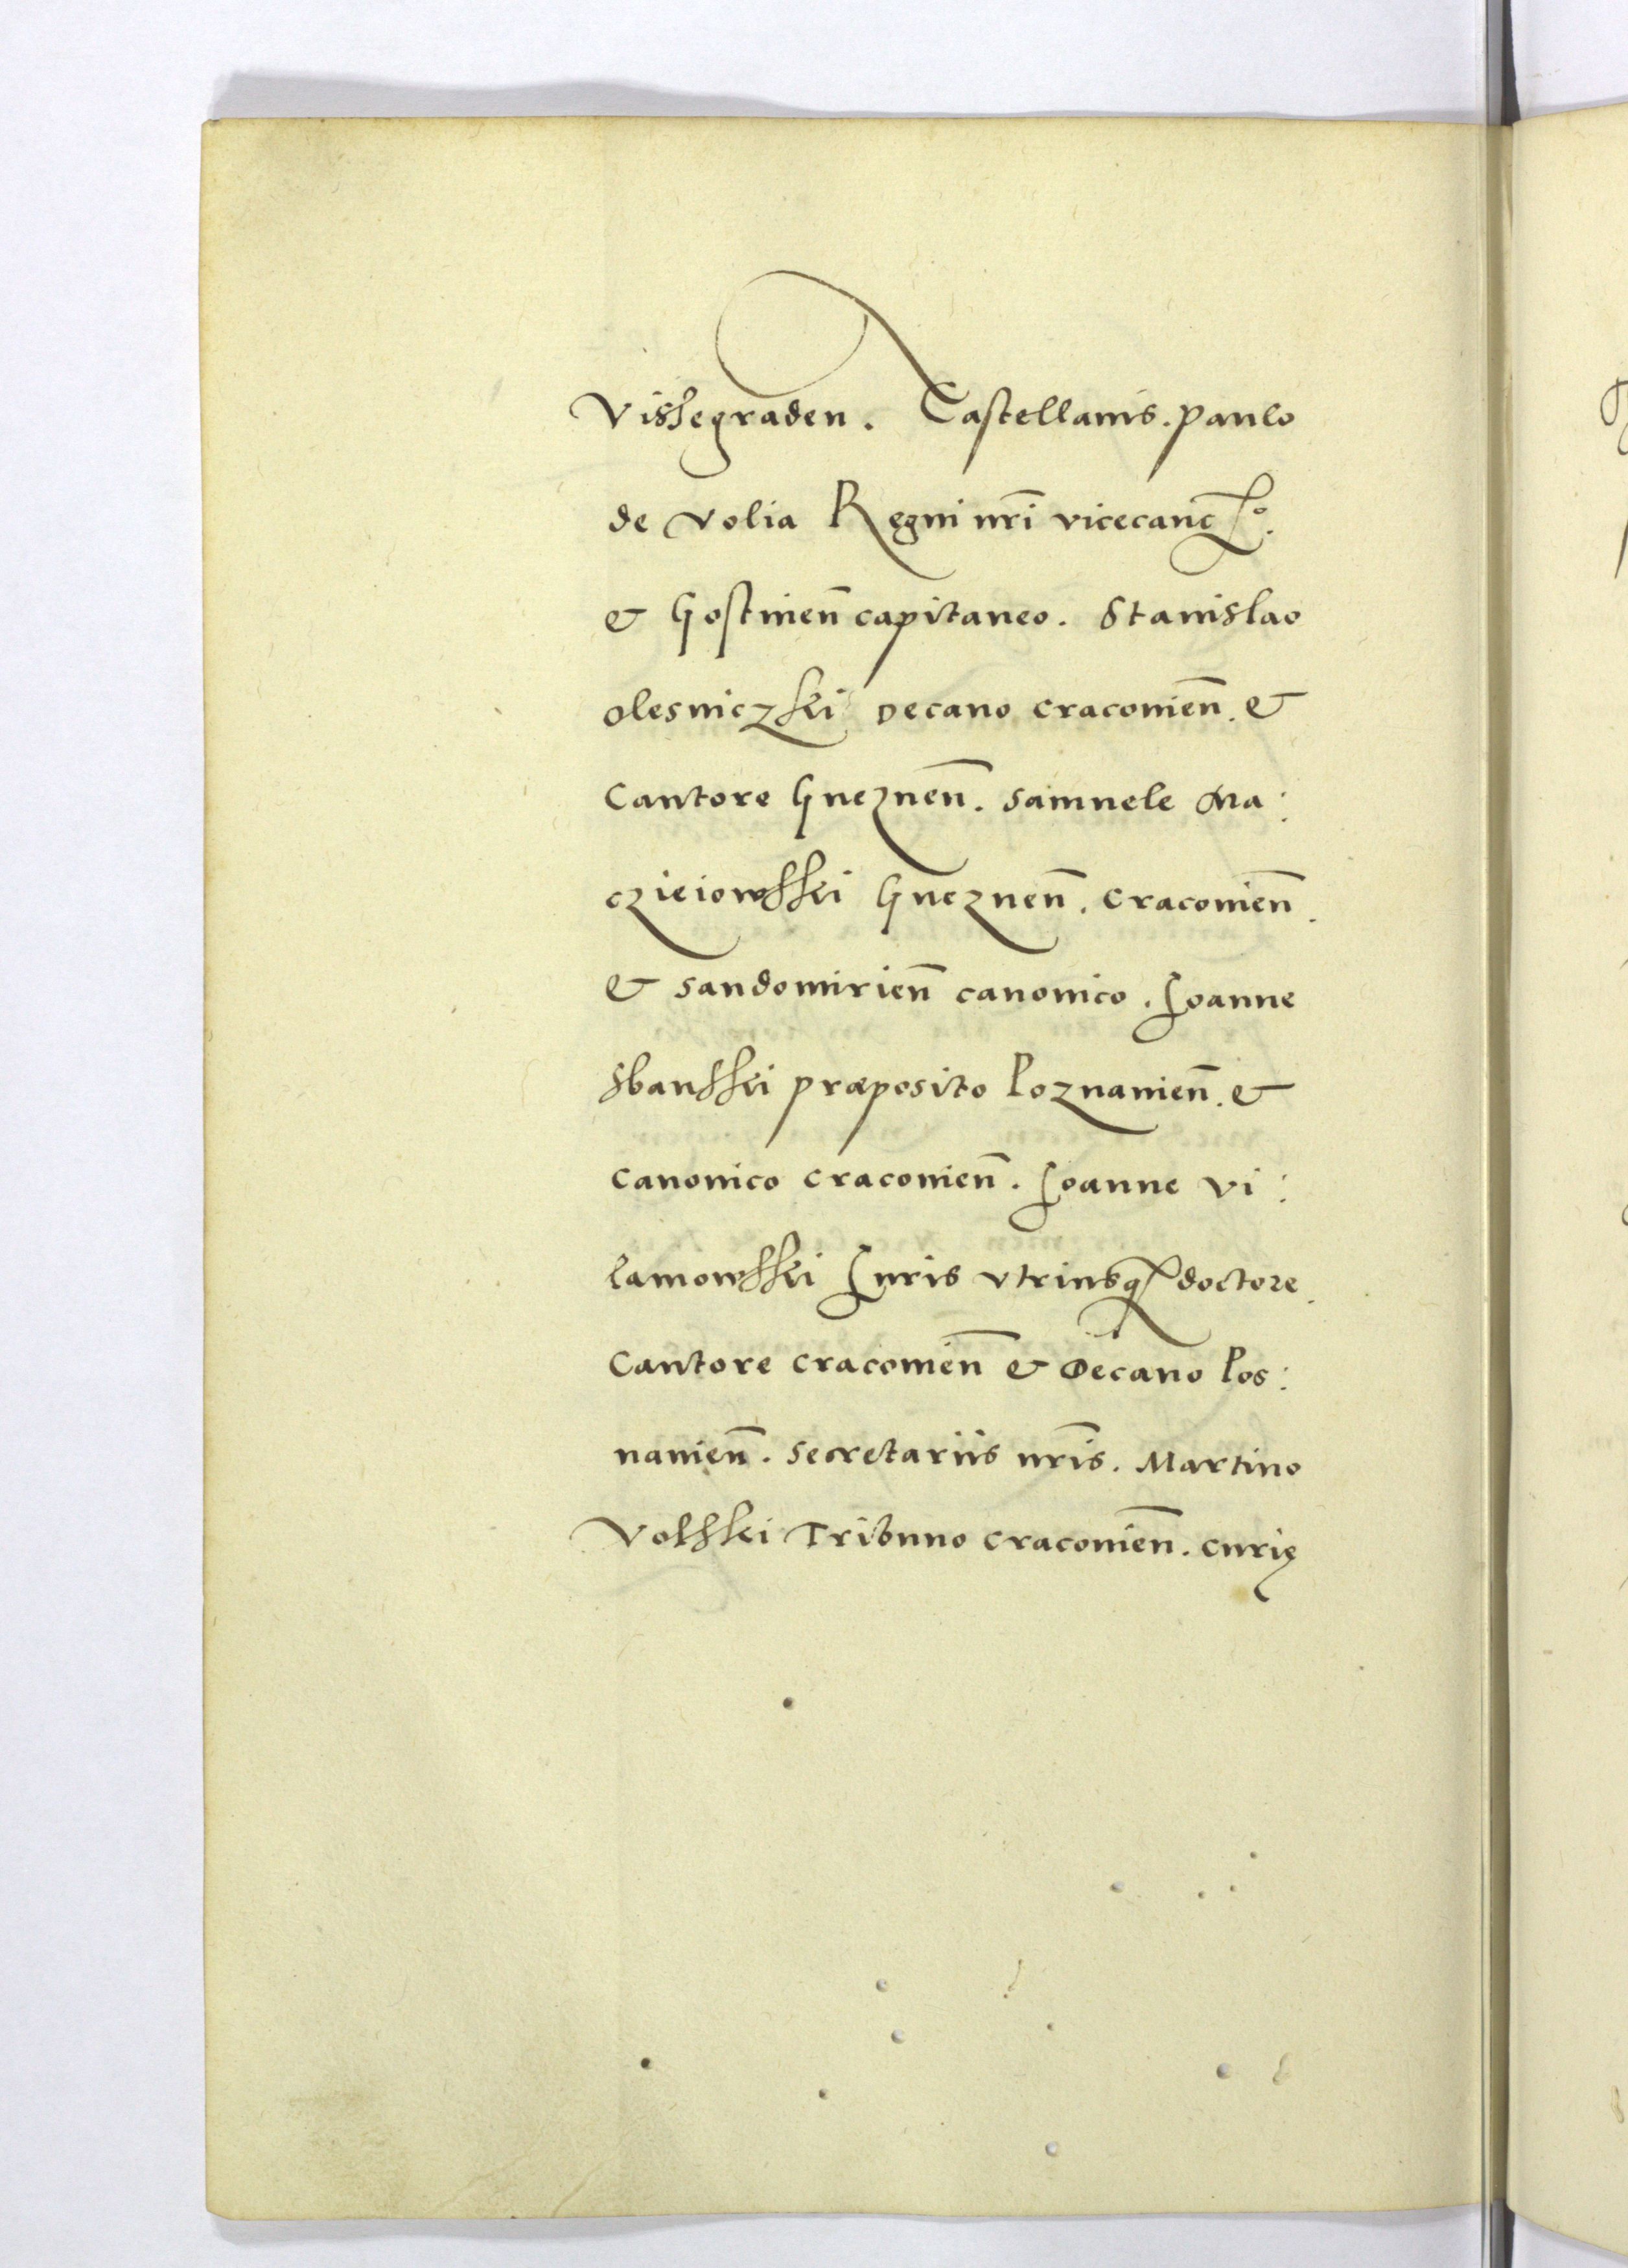 Vissegraden. Castellanis. paulo
de volia Regni nr̄i vicecanc͡ło.
& Gostinen̄ capitaneo. Stanislao
olesniczki Decano cracouien̄. &
Cantore Gneznen̄. samuele Ma:
czieiowsski Gneznen̄. cracouien̄.
& sandomirien̄ canonico. Joanne
sbansski præposito Poznanien̄. &
canonico cracouien̄. Joanne vi:
lamowsski Juris vtriusq; doctore.
Cantore cracouien̄ & Decano Pos:
nanien̄. secretariis nr̄is. Martino
Volsski Tribuno cracouien̄. curię